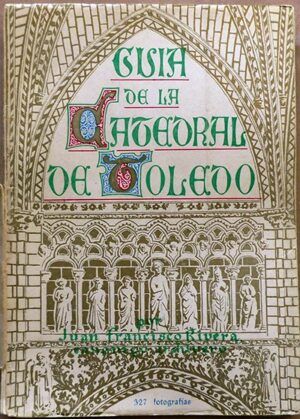 GUIA
DE LA
CATEDRAL
DE TOLEDO
por
Juan Francisco Rivera
327 fotografías